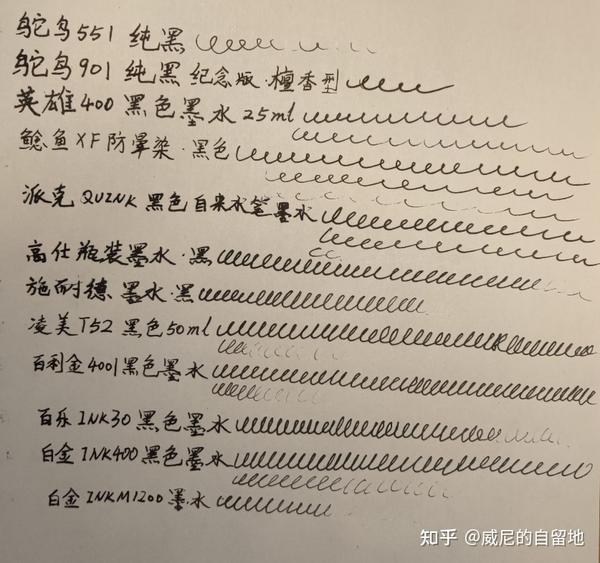 鸵鸟551 纯黑
鸵鸟901 纯黑 纪念版·檀香型
英雄400 黑色墨水25ml
鲶鱼XF防晕染·黑色
派克 QUINK 黑色自来水笔墨水
高仕瓶装墨水·黑
施耐德 墨水·黑
凌美T52 黑色50ml
百利金4001黑色墨水
百乐INK30 黑色墨水
白金INK400黑色墨水
白金INKM1200墨水
知乎 @威尼的自留地